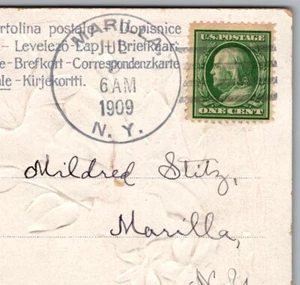 Cartolina postale - Dopisnice
- Levelező-Lap - Briefkaart
- Brefkort - Correspondenzkarte
- Kirjekortti.
JUL
6 AM
1909
N. Y.
U.S. POSTAGE
ONE CENT
Mildred Stitz,
Marilla,
N.Y.